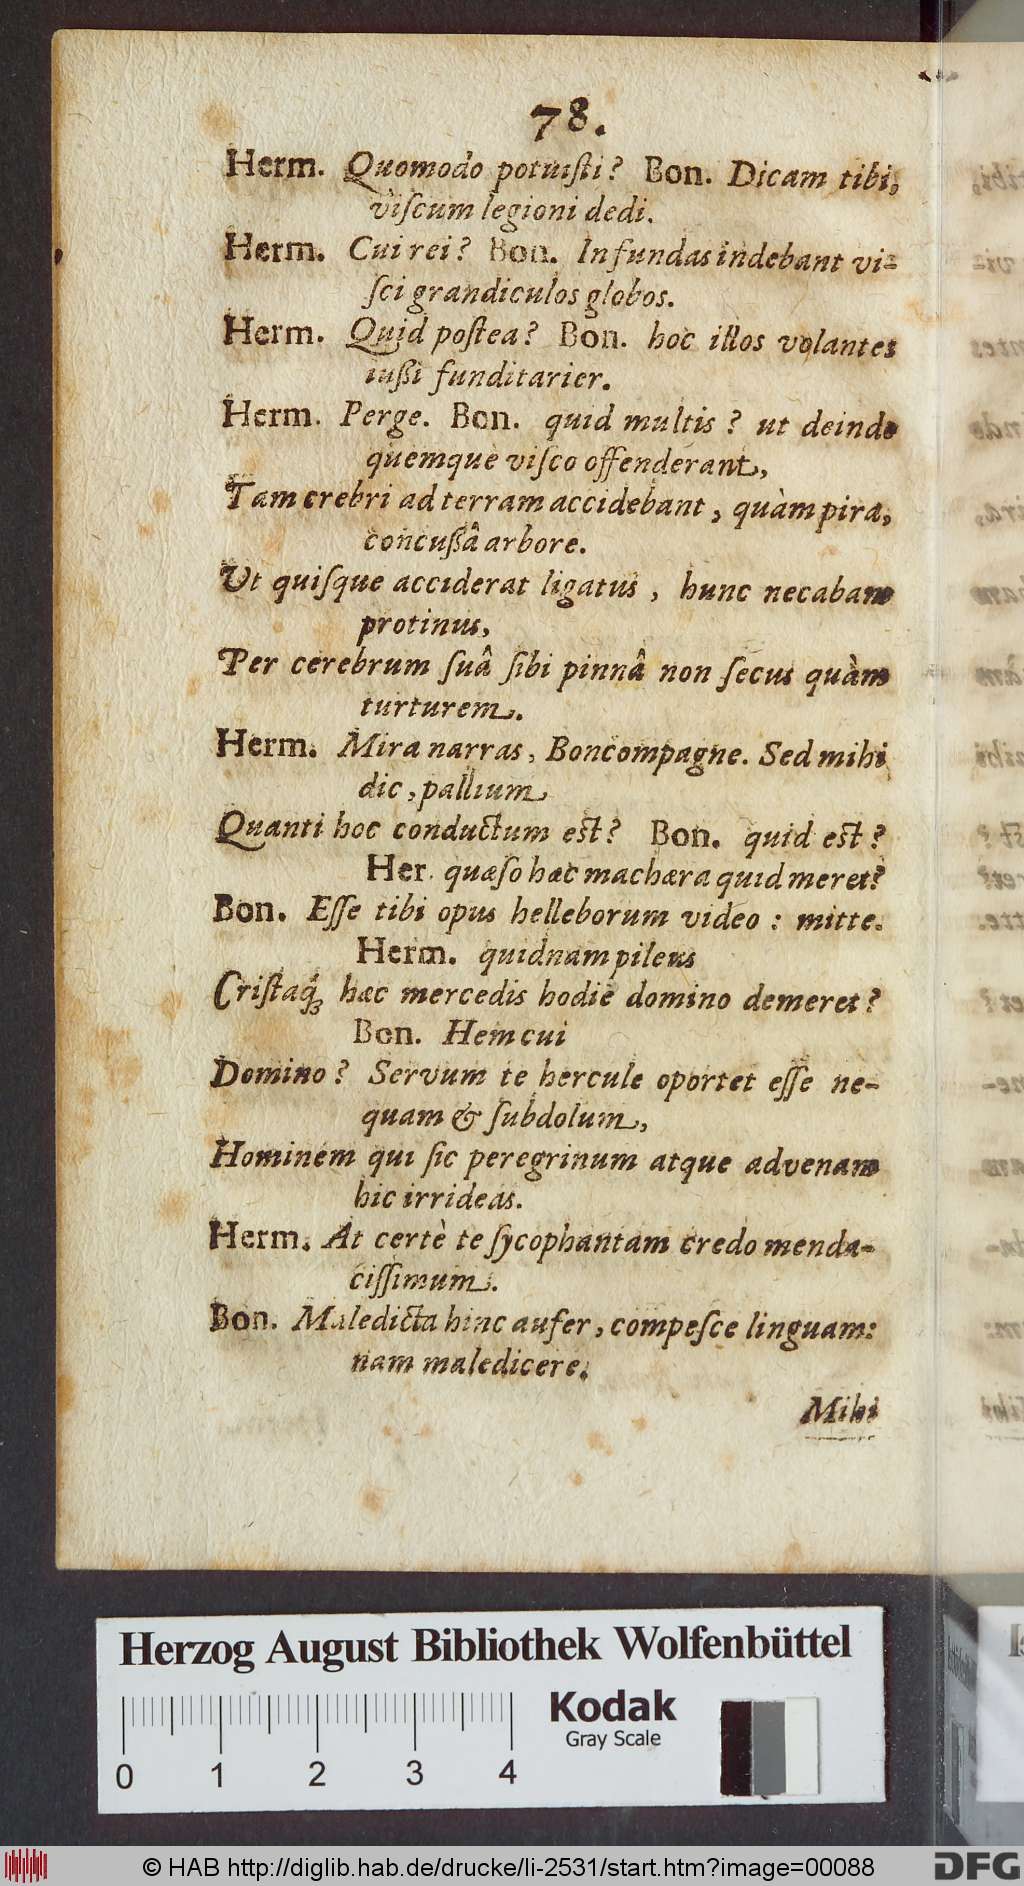 78.
Herm. Quomodo potuiſti? Bon. Dicam tibi,
viſcum legioni dedi.
Herm. Cui rei? Bon. In fundas indebant vi-
ſci grandiculos globos.
Herm. Quid poſtea? Bon. hoc illos volantes
iußi funditarier.
Herm. Perge. Bon. quid multis? ut deinde
quemque viſco offenderant,
Tam crebri ad terram accidebant, quàm pira,
concußâ arbore.
Ut quiſque acciderat ligatus, hunc necabam
protinus,
Per cerebrum ſuâ ſibi pinnâ non ſecus quàm
turturem.
Herm. Mira narras, Boncompagne. Sed mihi
dic, pallium
Quanti hoc conductum est? Bon. quid est?
Her. quæſo hæc machæra quid meret?
Bon. Eſſe tibi opus helleborum video: mitte.
Herm. quidnam pileus
Criſtaq́; hæc mercedis hodie domino demeret?
Bon. Hem cui
Domino? Servum te hercule oportet eſſe ne-
quam & ſubdolum,
Hominem qui ſic peregrinum atque advenam
hic irrideas.
Herm. At certè te ſycophantam credo menda-
ciſſimum.
Bon. Maledicta hinc aufer, compeſce linguam:
nam maledicere.
Mihi
Herzog August Bibliothek Wolfenbüttel
Kodak
Gray Scale
0 1 2 3 4
© HAB http://diglib.hab.de/drucke/li-2531/start.htm?image=00088
DFG